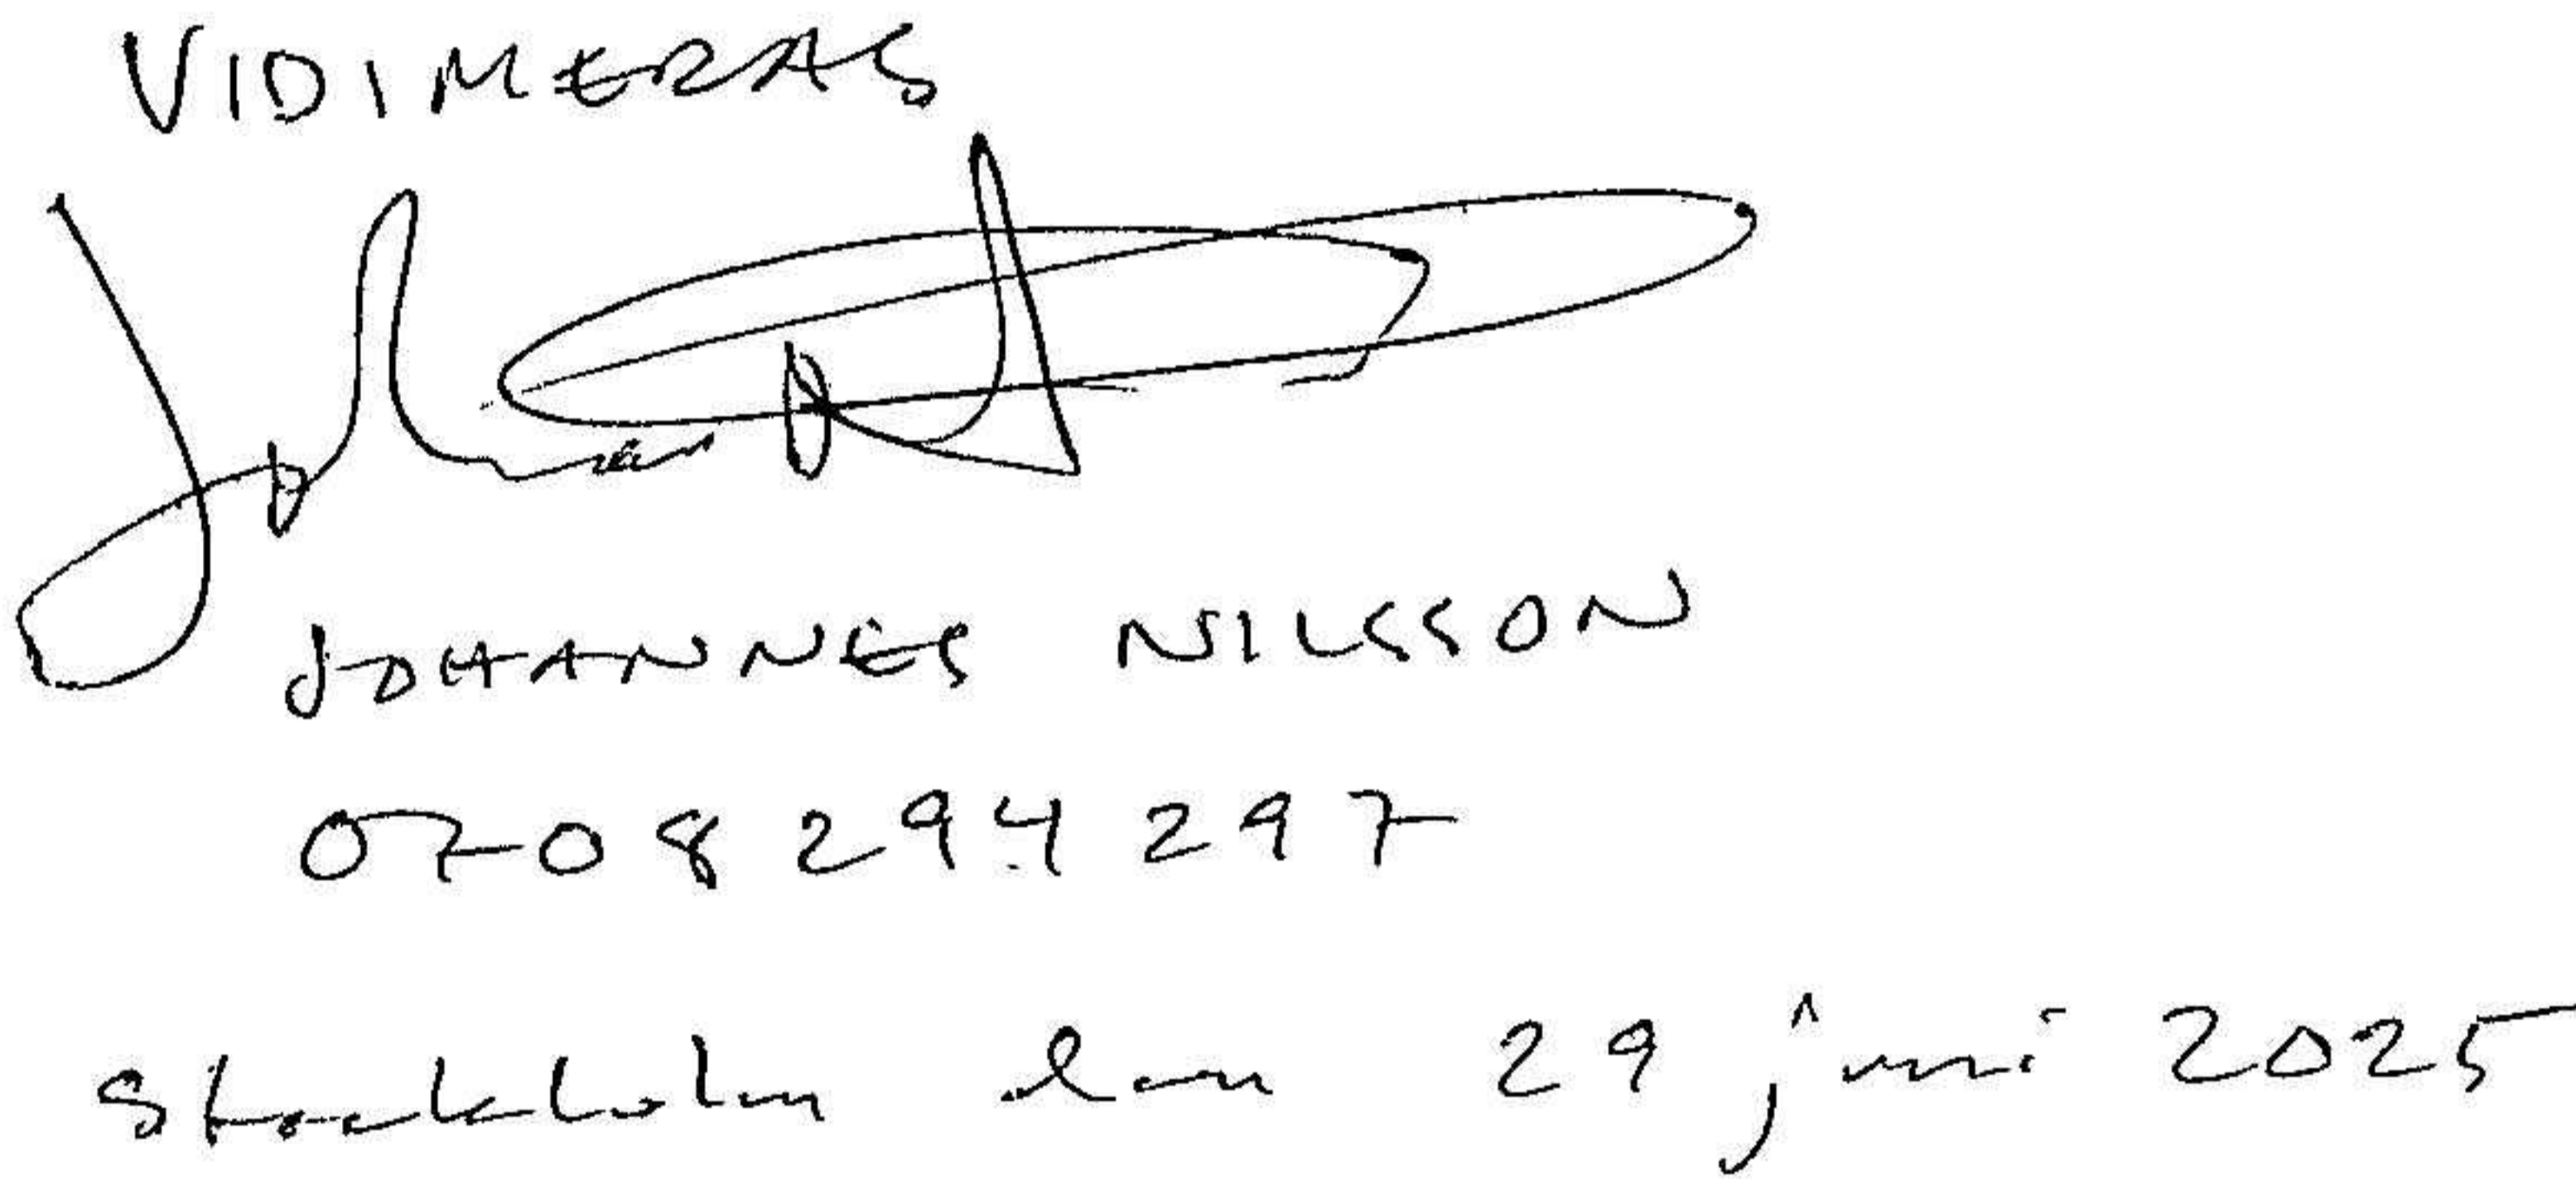 VIDIMERAS
JOHANNES NILSSON
0708 294 297
Stockholm den 29 juni 2025